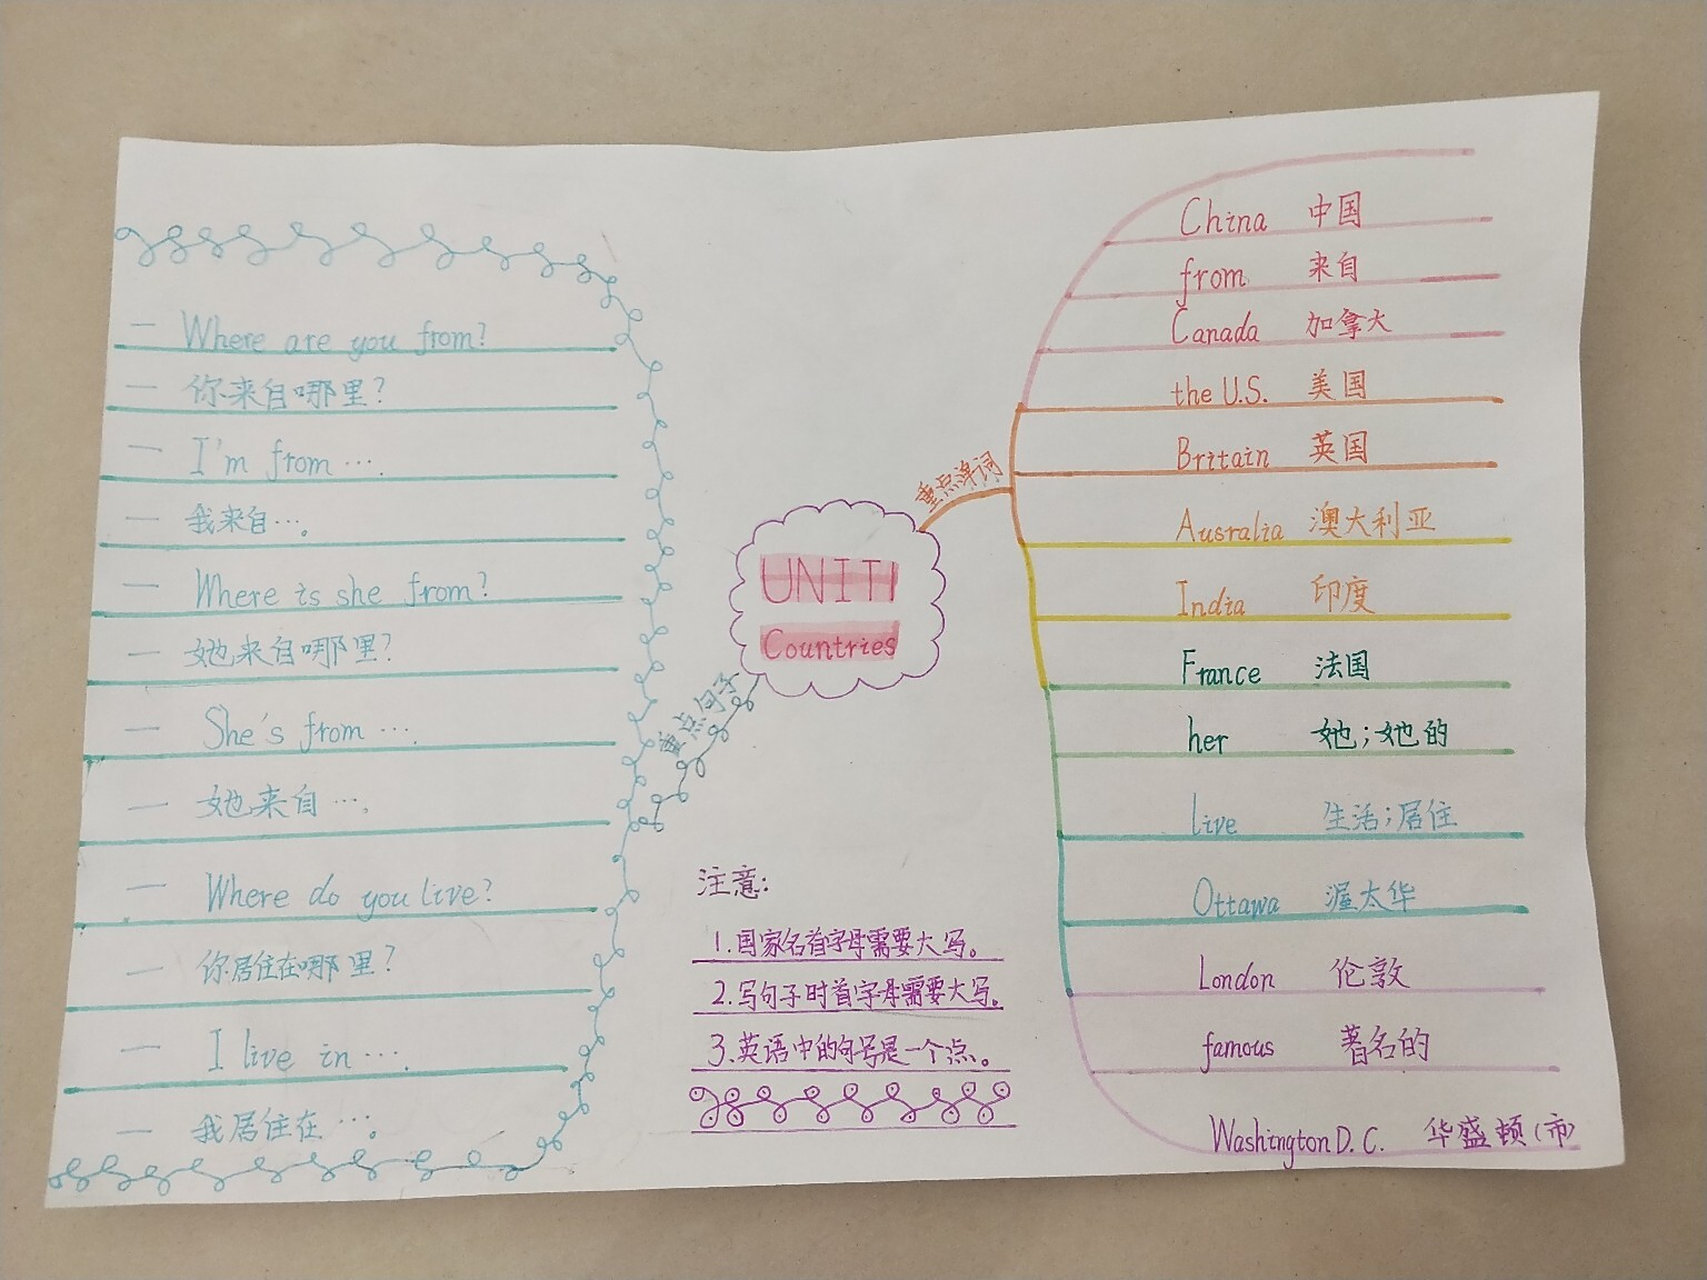 — Where are you from?
— 你来自哪里?
— I'm from ….
— 我来自…。
— Where is she from?
— 她来自哪里?
— She's from ….
— 她来自…。
— Where do you live?
— 你居住在哪里?
— I live in ….
— 我居住在…。
重点句子
UNIT1
Countries
重点单词
注意:
1.国家名首字母需要大写。
2.写句子时首字母需要大写。
3.英语中的句号是一个点。
China 中国
from 来自
Canada 加拿大
the U.S. 美国
Britain 英国
Ausralia 澳大利亚
India 印度
France 法国
her 她;她的
live 生活;居住
Ottawa 渥太华
London 伦敦
famous 著名的
Washington D.C. 华盛顿(市)